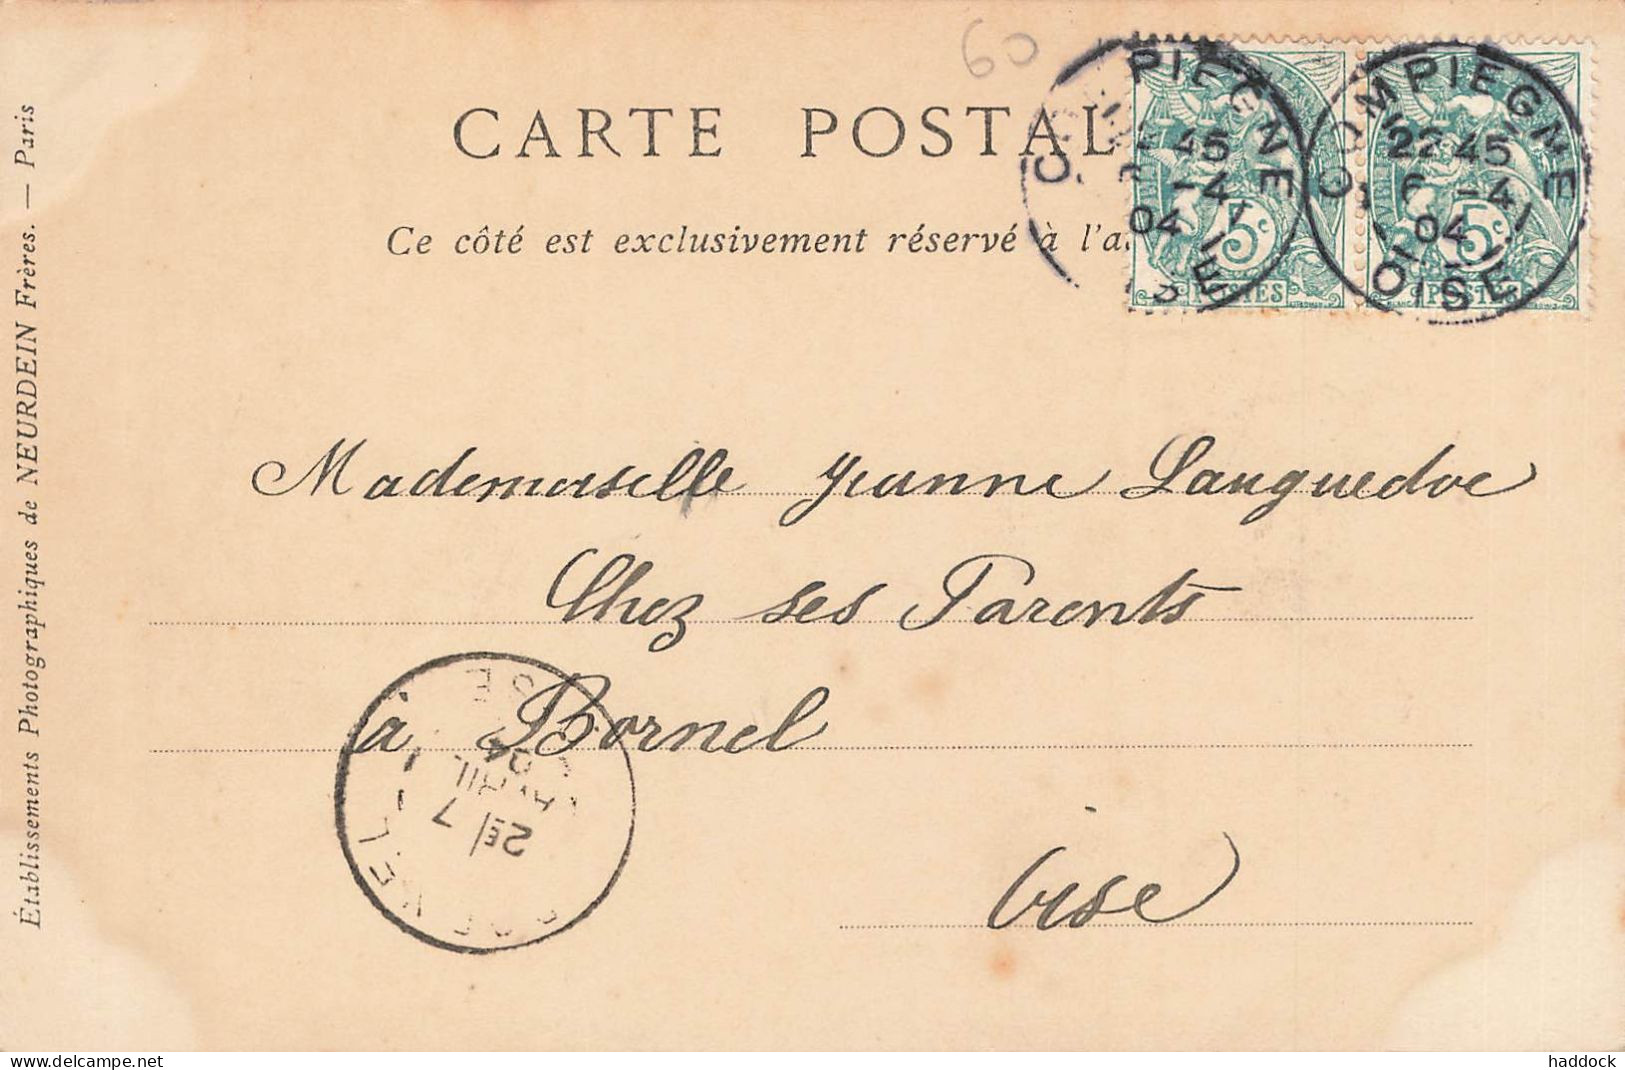 60
CARTE POSTAL
Ce côté est exclusivement réservé à l'a
COMPIEGNE
22 45
6 -4
04
OISE
PIEGNE
45
-4
04
5c
POSTES
5c
POSTES
Mademoiselle Jeanne Languedoc
Chez ses Parents
à Bornel
Oise
2E 7
AVRIL
04
Établissements Photographiques de NEURDEIN Frères. — Paris
haddock